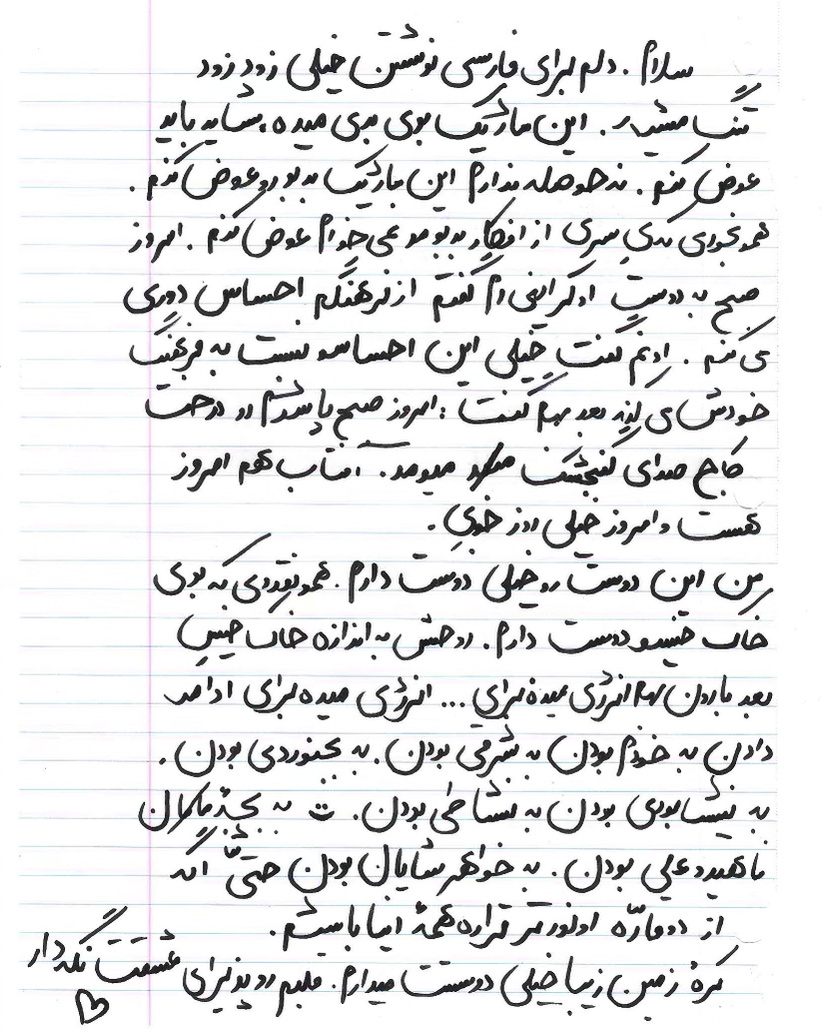 سلام. دلم برای فارسی نوشتن خیلی زود زود
تنگ میشه. این ماژیک بوی بدی میده، شاید باید
عوض کنم. نه حوصله ندارم این ماژیک بدبو رو عوض کنم.
همونجوری که یِ سری از افکار بدبومو نمی‌خوام عوض کنم. امروز
صبح به دوستِ اوکراینی‌ام گفتم از فرهنگم احساس دوری
می‌کنم. اونم گفت خیلی این احساسو نسبت به فرهنگ
خودش می‌کنه بعد بهم گفت: امروز صبح پا شدم رو درخت
کاج صدای گنجشک میومد. آفتاب هم امروز
هست و امروز خیلی روز خوبیِ.
من این دوست رو خیلی دوست دارم. همونقدری که بوی
خاک خیسو دوست دارم. روحش به اندازه خاک خیسِ
بعد بارون بهم انرژی میده برای... انرژی میده برای ادامه
دادن به خودم بودن به شرقی بودن. به بجنوردی بودن.
به نیشابوری بودن به نشاطی بودن. به بچهٔ
ناهید و علی بودن. به خواهر شایان بودن حتّی اگه
از دو قارّه اونورتر قراره همهٔ اینا باشم.
کرهٔ زمین زیبا خیلی دوستت میدارم. قلبم رو پذیرای عشقت نگه دار
♡